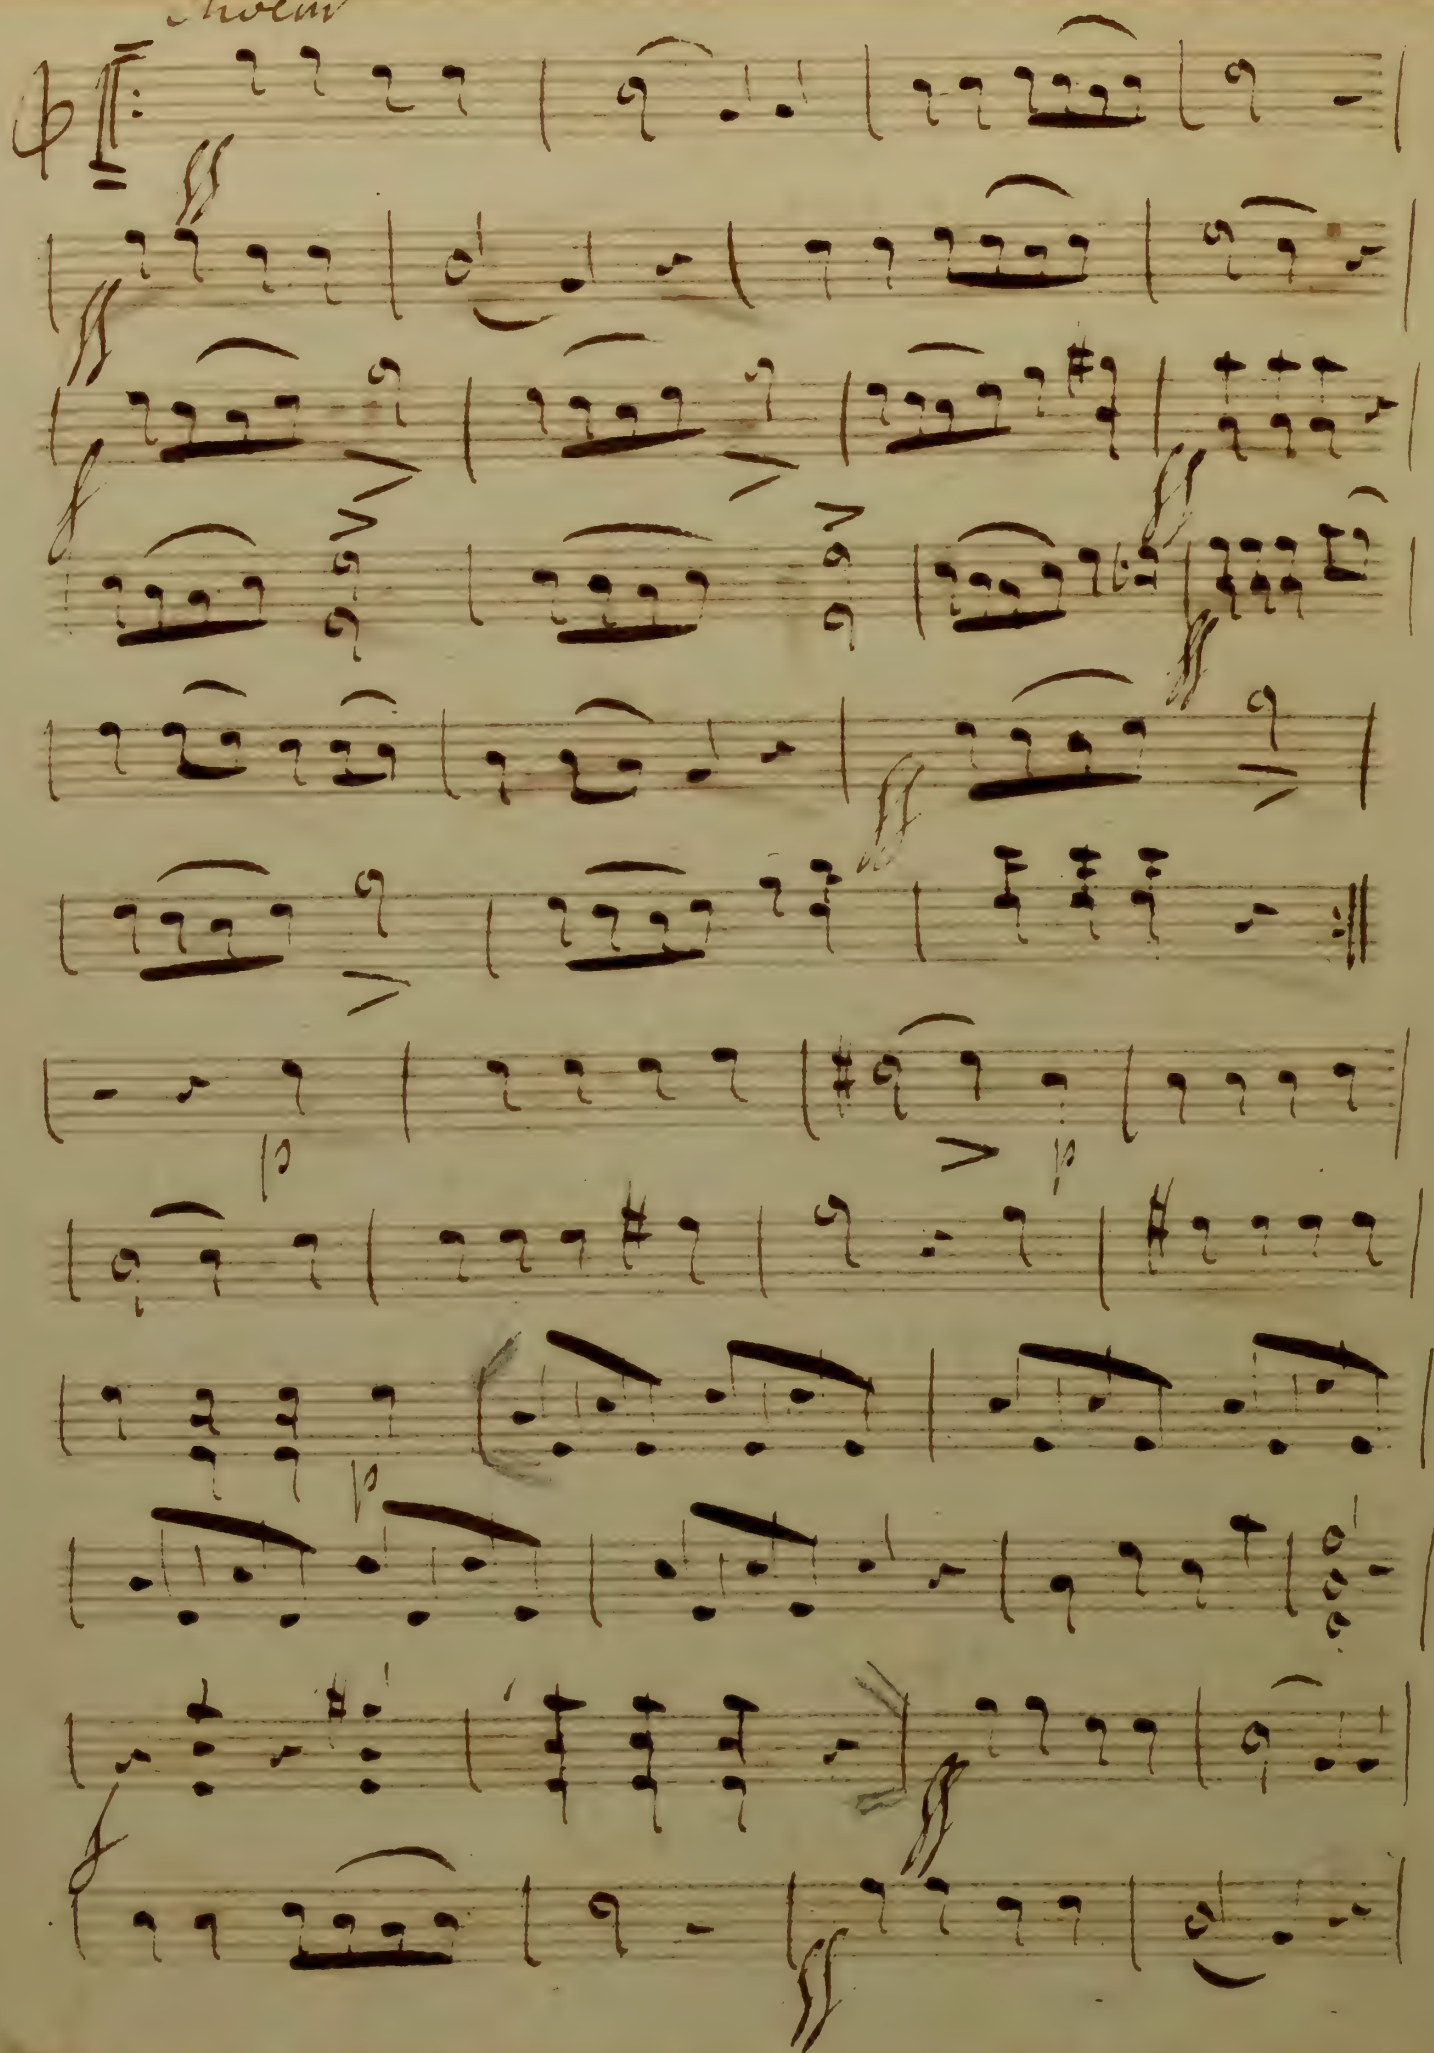 ff
ff
f
ff
ff
ff
p
p
p
f
ff
ff